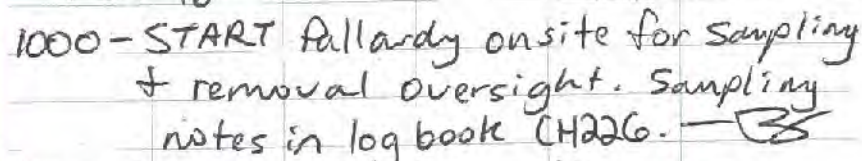 1000 - START Pallardy onsite for Sampling
+ removal oversight. Sampling
notes in log book CH226. —BS